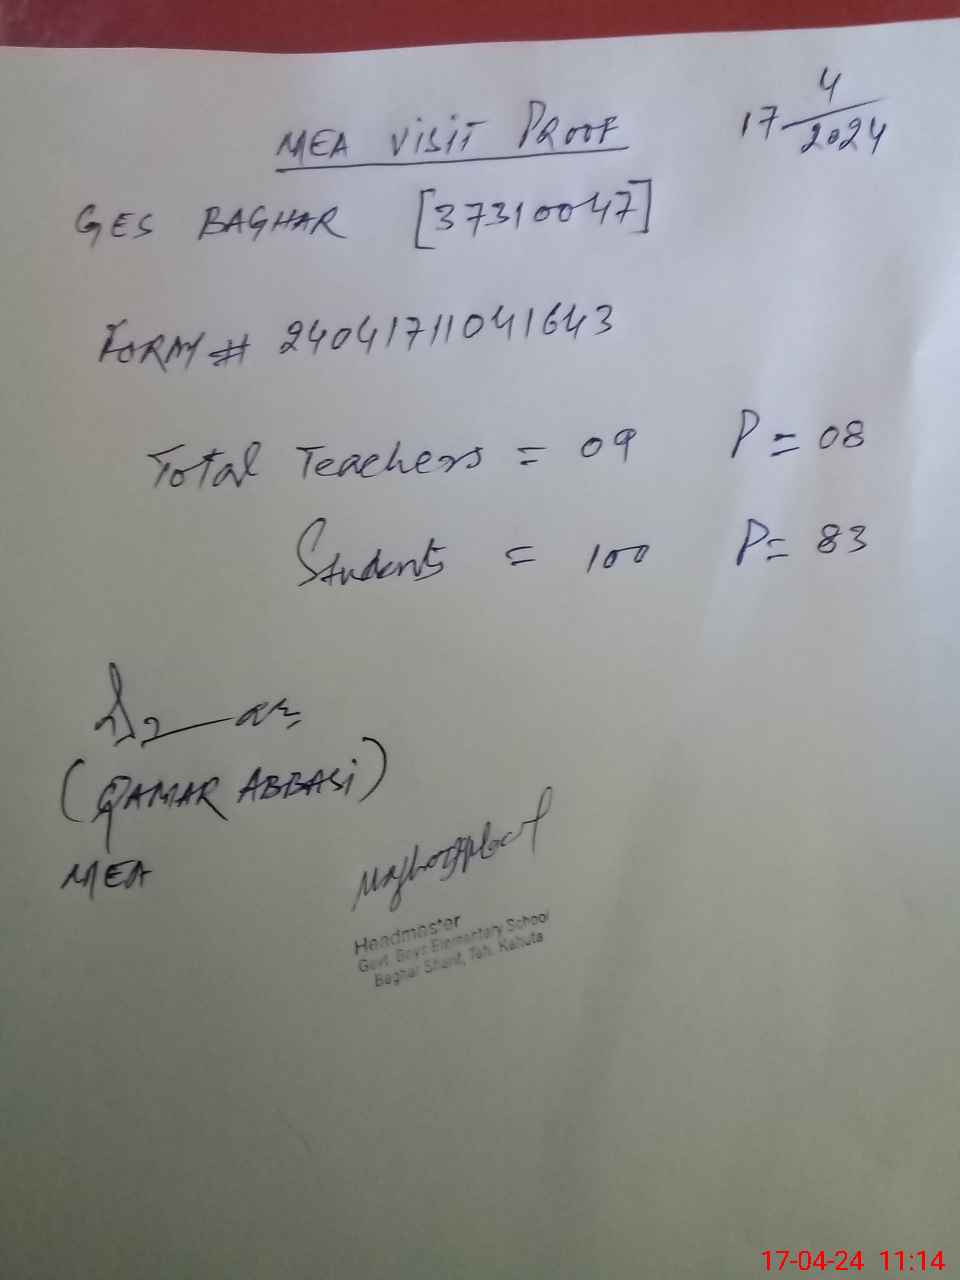 MEA VISIT PROOF
17 4/2024
GES BAGHAR [37310047]
FORM # 24041711041643
Total Teachers = 09 P = 08
Students = 100 P = 83
(QAMAR ABBASI)
MEA
Headmaster
Govt. Boys Elementary School
Baghar Sharif, Teh. Kahuta
17-04-24 11:14